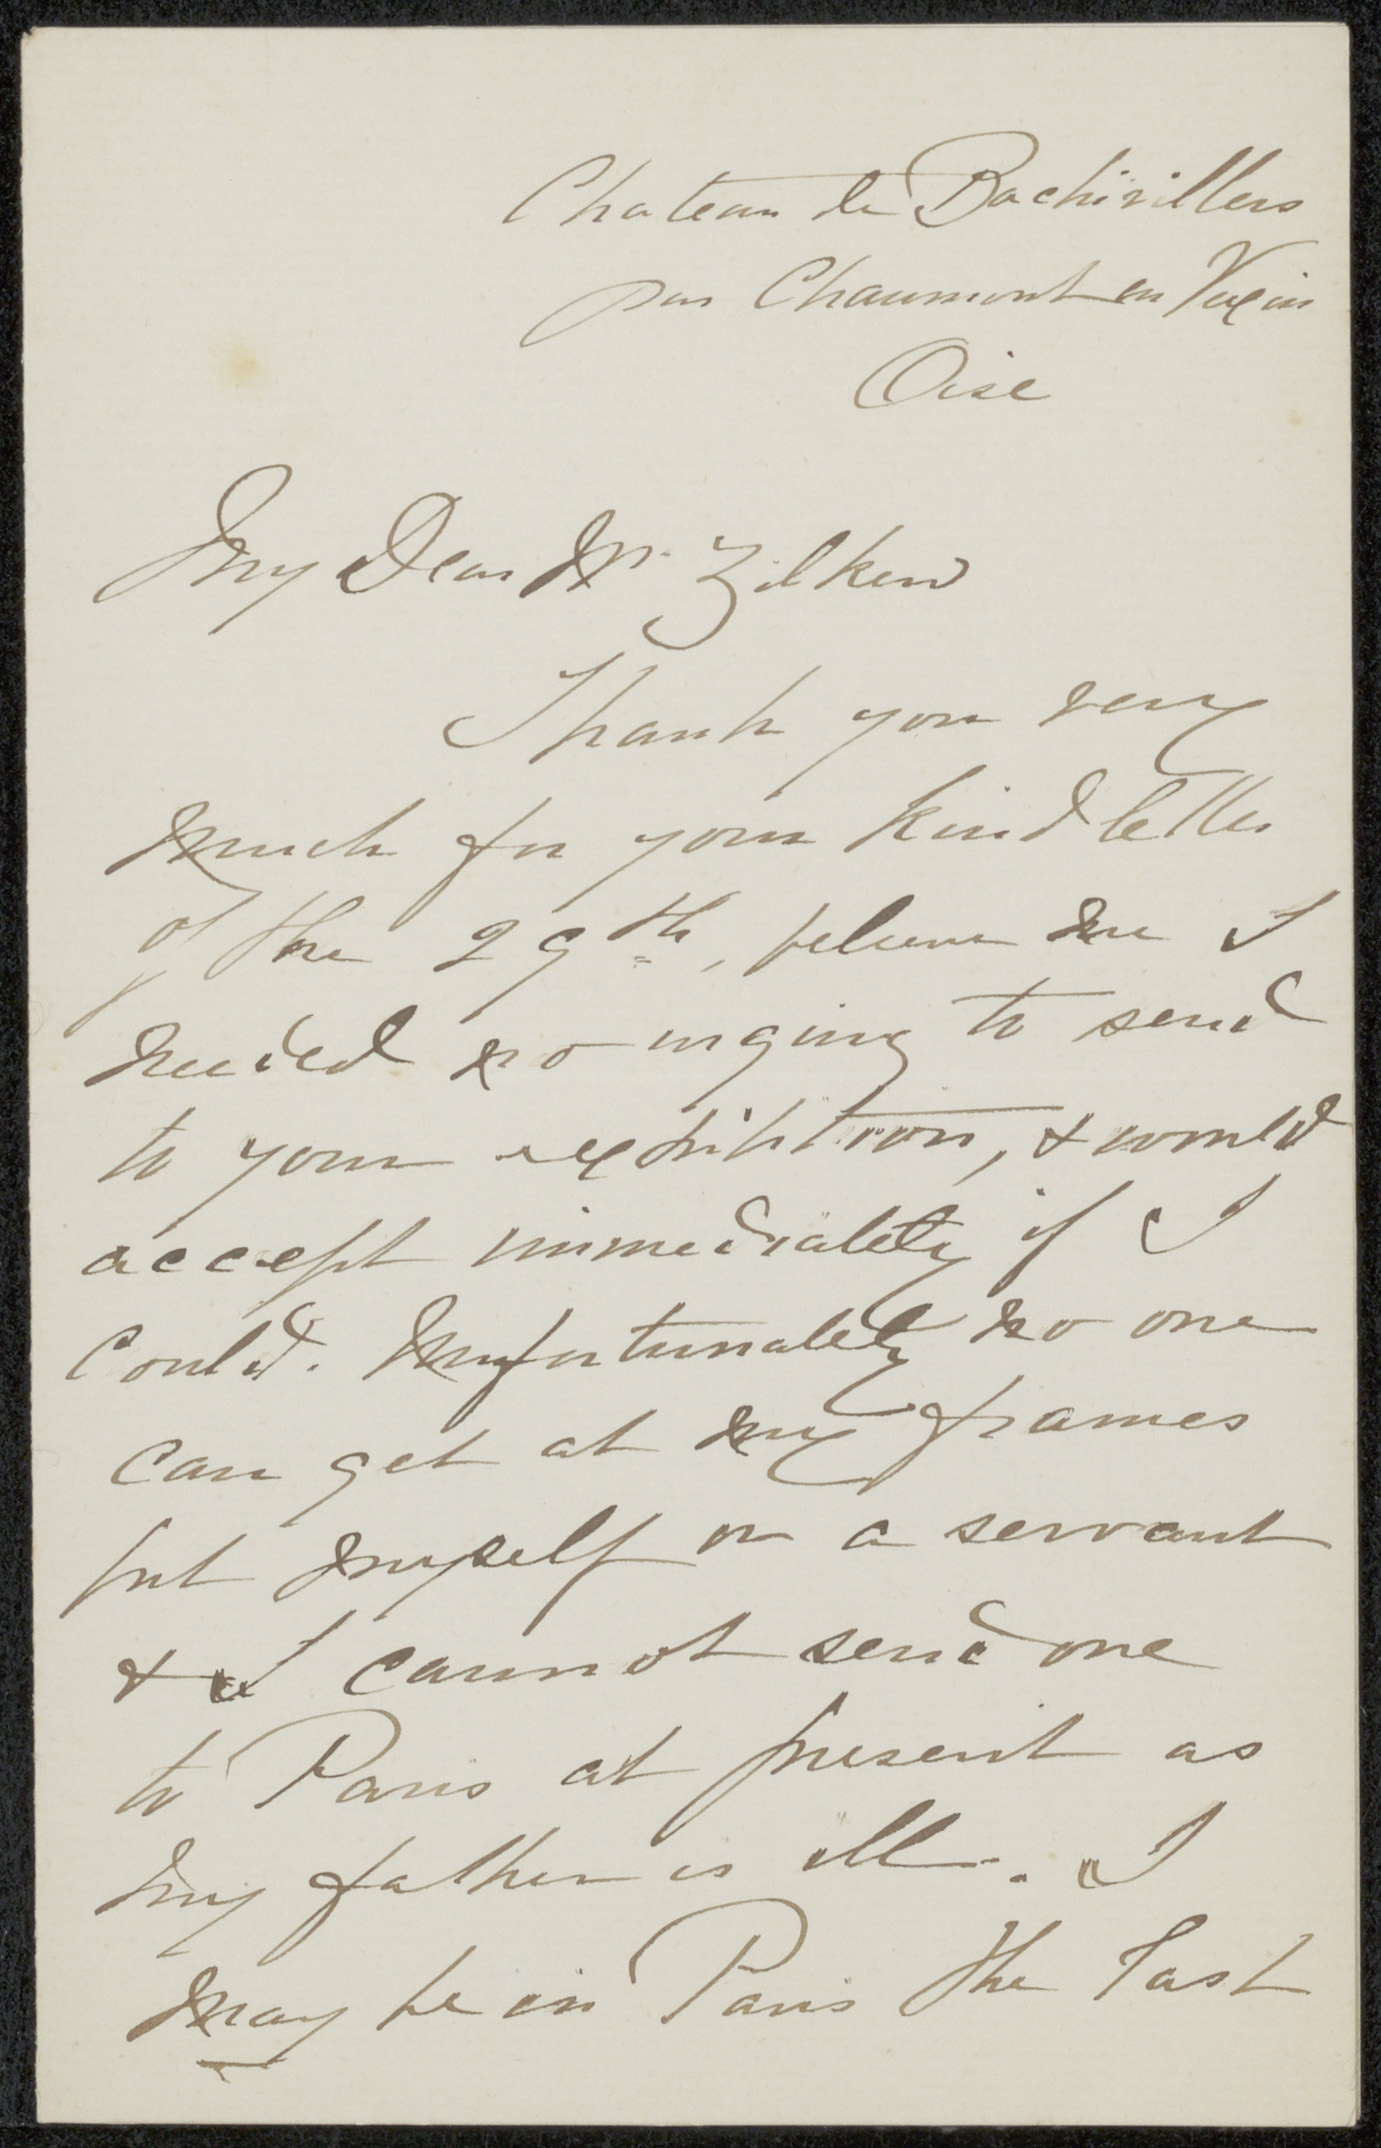 Chateau de Bachivillers
par Chaumont en Vexin
Oise
My Dear Mr. Zilken
Thank you very
much for your kind letter
of the 29th, believe me I
needed no urging to send
to your exhibition, & would
accept immediately if I
could. Unfortunately no one
can get at my frames
but myself or a servant
& I cannot send one
to Paris at present as
my father is ill. I
may be in Paris the last